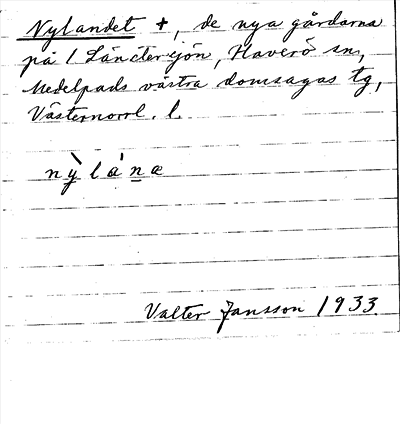 Nylandet +, de nya gårdarna
på / Länstersjön, Haverö sn,
Medelpads västra domsagas tg,
Västernorrl. l.
nỳlánæ
Valter Jansson 1933.